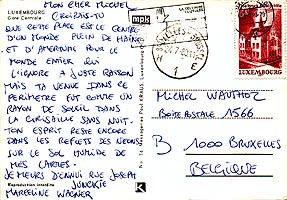 MON CHER MICHEL
LUXEMBOURG
Gare Centrale
CROIRAIS-TU
QUE CETTE PLACE EST LE CENTRE
D'UN MONDE PLEIN DE HAINE
ET D'AMERTUME POUR LE
MONDE ENTIER QUI
L'IGNORE A JUSTE RAISON
MAIS TA VENUE DANS CE
PERIMETRE FUT COMME UN
RAYON DE SOLEIL DANS
LA GRISAILLE SANS NUIT.
TON ESPRIT RESTE ENCORE
DANS LES REFLETS DES NEONS
SUR LE SOL HUMIDE DE
MES LARMES.
Reproduction interdite
JE MEURS D'ENNUI RUE JOSEPH
JUNCK
MARCELINE WAGNER
mpk
LUXEMBOURG
MICHEL WAUTHOZ
BOITE POSTALE 1566
B 1000 BRUXELLES
BELGIQUE
K